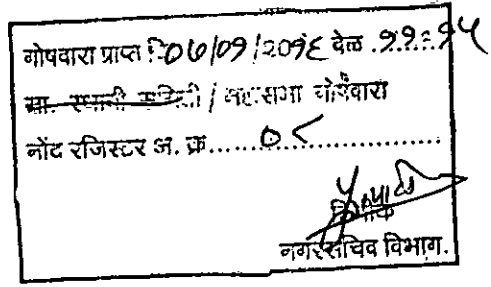 गोषवारा प्राप्त दि. ०७/०१/२०१६ वेळ .११:१५
मा. स्थायी समिती / महासभा गोषवारा
नोंद रजिस्टर अ. क्र.....०८..............
लिपीक
नगरसचिव विभाग.